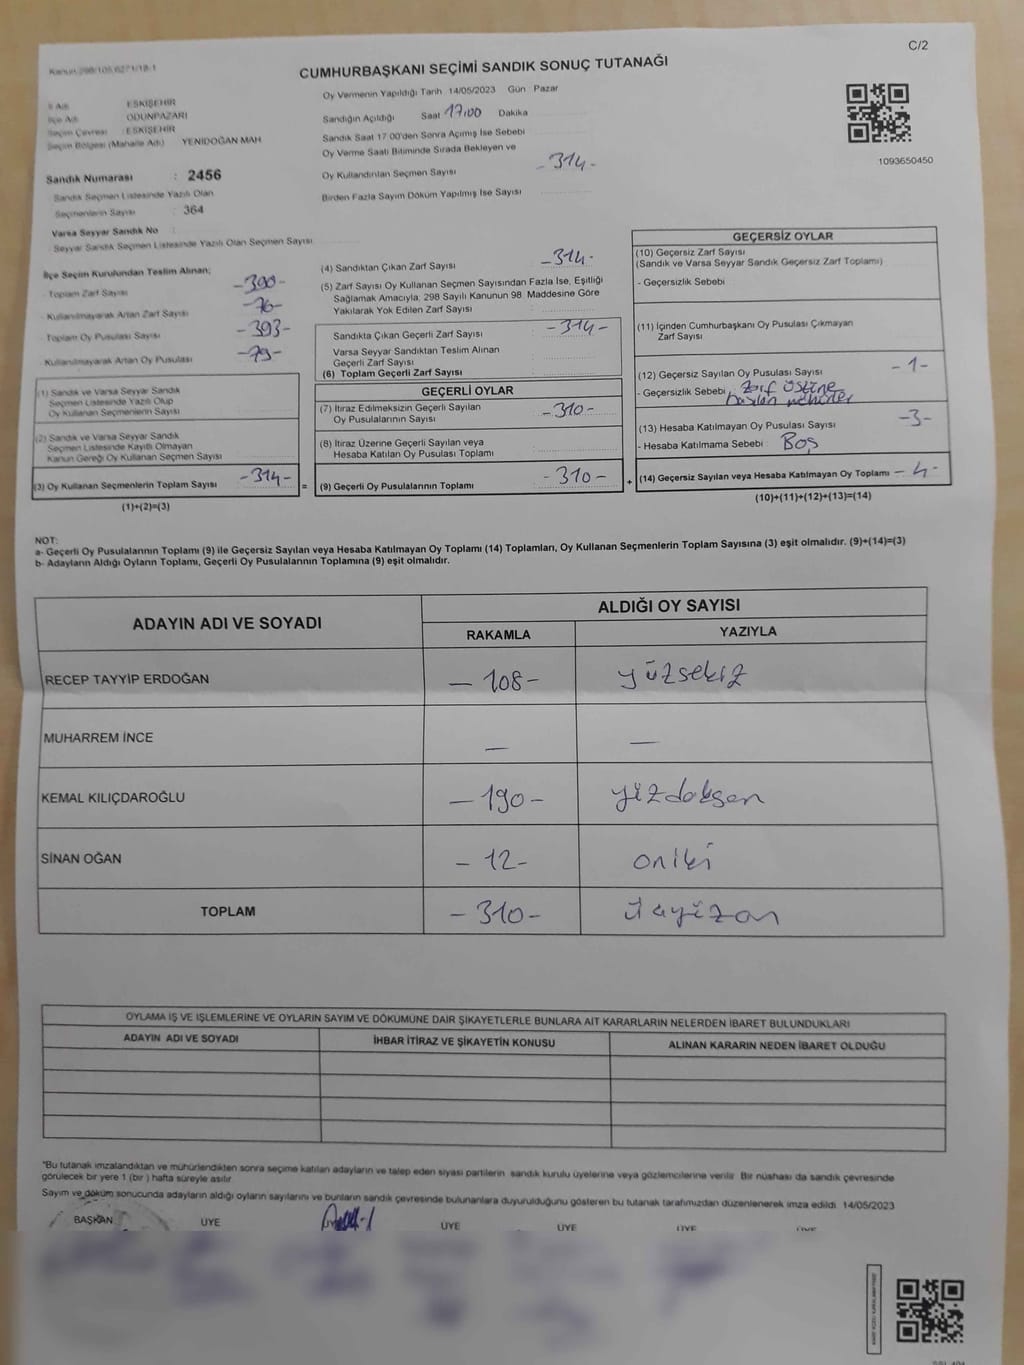 C/2
Kanun:298/105,6271/18-1
CUMHURBAŞKANI SEÇİMİ SANDIK SONUÇ TUTANAĞI
İl Adı : ESKİŞEHİR
İlçe Adı : ODUNPAZARI
Seçim Çevresi : ESKİŞEHİR
Seçim Bölgesi (Mahalle Adı) YENİDOĞAN MAH
Sandık Numarası : 2456
Sandık Seçmen Listesinde Yazılı Olan
Seçmenlerin Sayısı : 364
Varsa Seyyar Sandık No :
Seyyar Sandık Seçmen Listesinde Yazılı Olan Seçmen Sayısı
Oy Vermenin Yapıldığı Tarih 14/05/2023 Gün Pazar
Sandığın Açıldığı Saat 17:00 Dakika
Sandık Saat 17:00'den Sonra Açılmış İse Sebebi
Oy Verme Saati Bitiminde Sırada Bekleyen ve
Oy Kullandırılan Seçmen Sayısı -314-
Birden Fazla Sayım Döküm Yapılmış İse Sayısı
1093650450
İlçe Seçim Kurulundan Teslim Alınan;
- Toplam Zarf Sayısı -390-
- Kullanılmayarak Artan Zarf Sayısı -76-
- Toplam Oy Pusulası Sayısı -393-
- Kullanılmayarak Artan Oy Pusulası -79-
(1) Sandık ve Varsa Seyyar Sandık
Seçmen Listesinde Yazılı Olup
Oy Kullanan Seçmenlerin Sayısı
(2) Sandık ve Varsa Seyyar Sandık
Seçmen Listesinde Kayıtlı Olmayan
Kanun Gereği Oy Kullanan Seçmen Sayısı
(3) Oy Kullanan Seçmenlerin Toplam Sayısı -314- =
(1)+(2)=(3)
(4) Sandıktan Çıkan Zarf Sayısı -314-
(5) Zarf Sayısı Oy Kullanan Seçmen Sayısından Fazla İse, Eşitliği
Sağlamak Amacıyla; 298 Sayılı Kanunun 98. Maddesine Göre
Yakılarak Yok Edilen Zarf Sayısı
Sandıkta Çıkan Geçerli Zarf Sayısı -314-
Varsa Seyyar Sandıktan Teslim Alınan
Geçerli Zarf Sayısı
(6) Toplam Geçerli Zarf Sayısı
GEÇERLİ OYLAR
(7) İtiraz Edilmeksizin Geçerli Sayılan
Oy Pusulalarının Sayısı -310-
(8) İtiraz Üzerine Geçerli Sayılan veya
Hesaba Katılan Oy Pusulası Toplamı
(9) Geçerli Oy Pusulalarının Toplamı -310- +
GEÇERSİZ OYLAR
(10) Geçersiz Zarf Sayısı
(Sandık ve Varsa Seyyar Sandık Geçersiz Zarf Toplamı)
- Geçersizlik Sebebi
(11) İçinden Cumhurbaşkanı Oy Pusulası Çıkmayan
Zarf Sayısı
(12) Geçersiz Sayılan Oy Pusulası Sayısı -1-
- Geçersizlik Sebebi : Zarf üstüne
(13) Hesaba Katılmayan Oy Pusulası Sayısı -3-
- Hesaba Katılmama Sebebi : Boş
(14) Geçersiz Sayılan veya Hesaba Katılmayan Oy Toplamı -4-
(10)+(11)+(12)+(13)=(14)
NOT:
a- Geçerli Oy Pusulalarının Toplamı (9) ile Geçersiz Sayılan veya Hesaba Katılmayan Oy Toplamı (14) Toplamları, Oy Kullanan Seçmenlerin Toplam Sayısına (3) eşit olmalıdır. (9)+(14)=(3)
b- Adayların Aldığı Oyların Toplamı, Geçerli Oy Pusulalarının Toplamına (9) eşit olmalıdır.
ADAYIN ADI VE SOYADI
ALDIĞI OY SAYISI
RAKAMLA YAZIYLA
RECEP TAYYİP ERDOĞAN -108- yüzsekiz
MUHARREM İNCE - -
KEMAL KILIÇDAROĞLU -190- yüzdoksan
SİNAN OĞAN -12- oniki
TOPLAM -310- üçyüzon
OYLAMA İŞ VE İŞLEMLERİNE VE OYLARIN SAYIM VE DÖKÜMÜNE DAİR ŞİKAYETLERLE BUNLARA AİT KARARLARIN NELERDEN İBARET BULUNDUKLARI
ADAYIN ADI VE SOYADI İHBAR İTİRAZ VE ŞİKAYETİN KONUSU ALINAN KARARIN NEDEN İBARET OLDUĞU
*Bu tutanak imzalandıktan ve mühürlendikten sonra seçime katılan adayların ve talep eden siyasi partilerin sandık kurulu üyelerine veya gözlemcilerine verilir. Bir nüshası da sandık çevresinde
görülecek bir yere 1 (bir ) hafta süreyle asılır.
Sayım ve döküm sonucunda adayların aldığı oyların sayılarını ve bunların sandık çevresinde bulunanlara duyurulduğunu gösteren bu tutanak tarafımızdan düzenlenerek imza edildi. 14/05/2023
BAŞKAN ÜYE ÜYE ÜYE ÜYE ÜYE